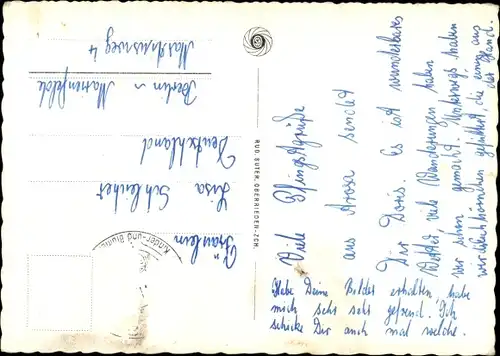 Viele Pfingstgrüße
aus Arosa sendet
Dir Doris. Es ist wunderbares
Wetter, viele Wanderungen haben
wir schon gemacht. Unterwegs haben
wir Eichhörnchen gefüttert, die einem aus
der Hand.
Habe Deine Bilder erhalten, habe
mich sehr sehr gefreut. Ich
schicke Dir auch mal welche.
RUD. SUTER, OBERRIEDEN-ZCH.
Fräulein
Lisa Schleicher
Deutschland
Berlin - Marienfelde
4
Kinder- und Blumen